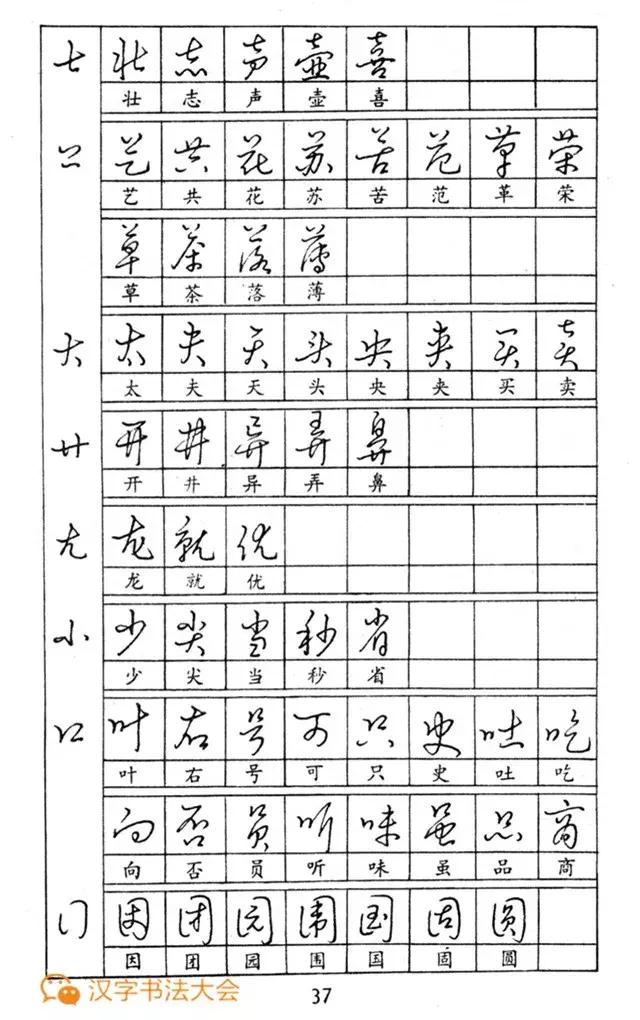 士 壮 志 声 壶 喜
壮 志 声 壶 喜
艹 艺 共 花 苏 苦 范 革 荣
艺 共 花 苏 苦 范 革 荣
草 茶 落 薄
草 茶 落 薄
大 太 夫 天 头 央 夹 买 卖
太 夫 天 头 央 夹 买 卖
廾 开 井 异 弄 鼻
开 井 异 弄 鼻
尢 龙 就 优
龙 就 优
小 少 尖 当 秒 省
少 尖 当 秒 省
口 叶 右 号 可 只 史 吐 吃
叶 右 号 可 只 史 吐 吃
向 否 员 听 味 虽 品 商
向 否 员 听 味 虽 品 商
囗 因 团 园 围 国 固 圆
因 团 园 围 国 固 圆
汉字书法大会
37